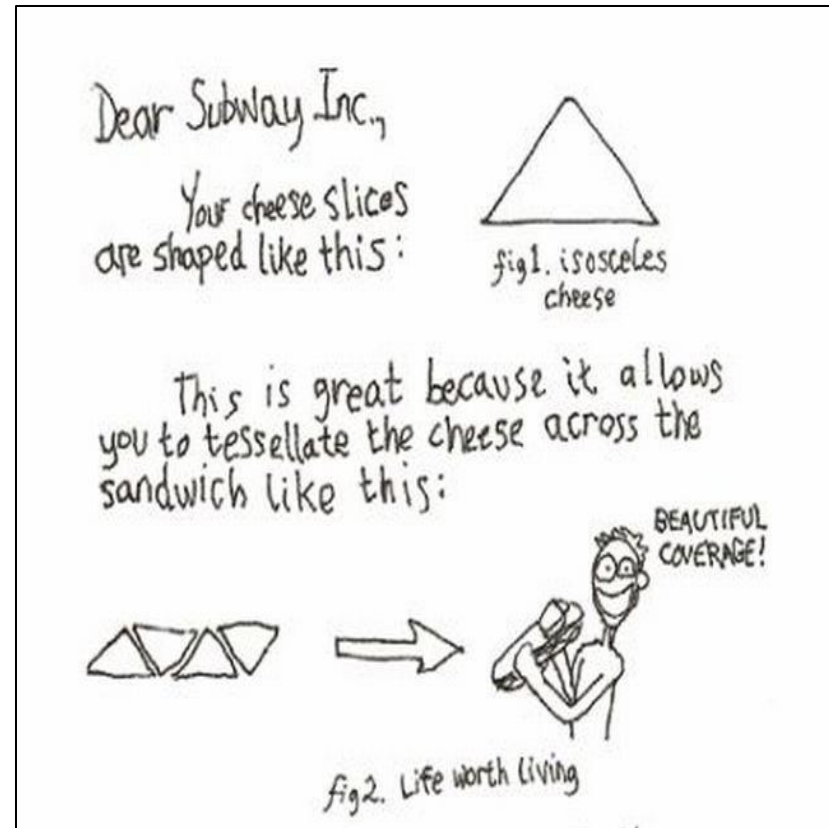 Dear Subway Inc.,
Your cheese slices
are shaped like this:
fig1. isosceles
cheese
This is great because it allows
you to tessellate the cheese across the
sandwich like this:
BEAUTIFUL
COVERAGE!
fig2. Life worth living